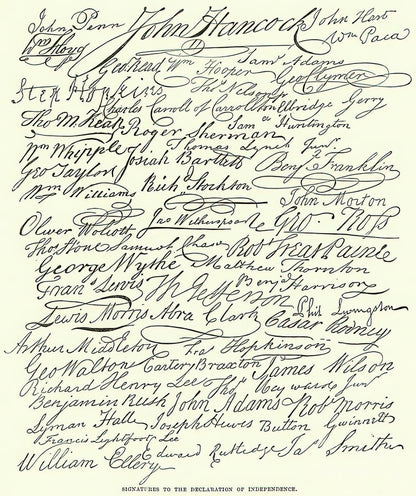 John Penn John Hancock John Hart
Wm Floyd Wm Paca
Geo Read Wm Hooper Saml Adams Geo Clymer
Step Hopkins Thos Nelson jr
Charles Carroll of Carrollton Elbridge Gerry
Tho M:Kean Roger Sherman Sam Huntington
Wm Whipple Josiah Bartlett Thomas Lynch Junr.
Geo Taylon Benj Franklin
Wm Williams Richd Stockton John Morton
Oliver Wolcott Jno Witherspoon Geo. Ross
Thos Stone Samuel Chase Robt Treat Paine
George Wythe Matthew Thornton
Frans Lewis Th Jefferson Benja Harrison
Lewis Morris Abra Clark Phil Livingston
Casar Rodney
Arthur Middleton Fras Hopkinson
Geo Walton Carter Braxton James Wilson
Richard Henry Lee Thos Heyward Junr
Benjamin Rush John Adams Robt Morris
Lyman Hall Joseph Hewes Button Gwinnett
Francis Lightfoot Lee
William Ellery Edward Rutledge Jas Smith
SIGNATURES TO THE DECLARATION OF INDEPENDENCE.